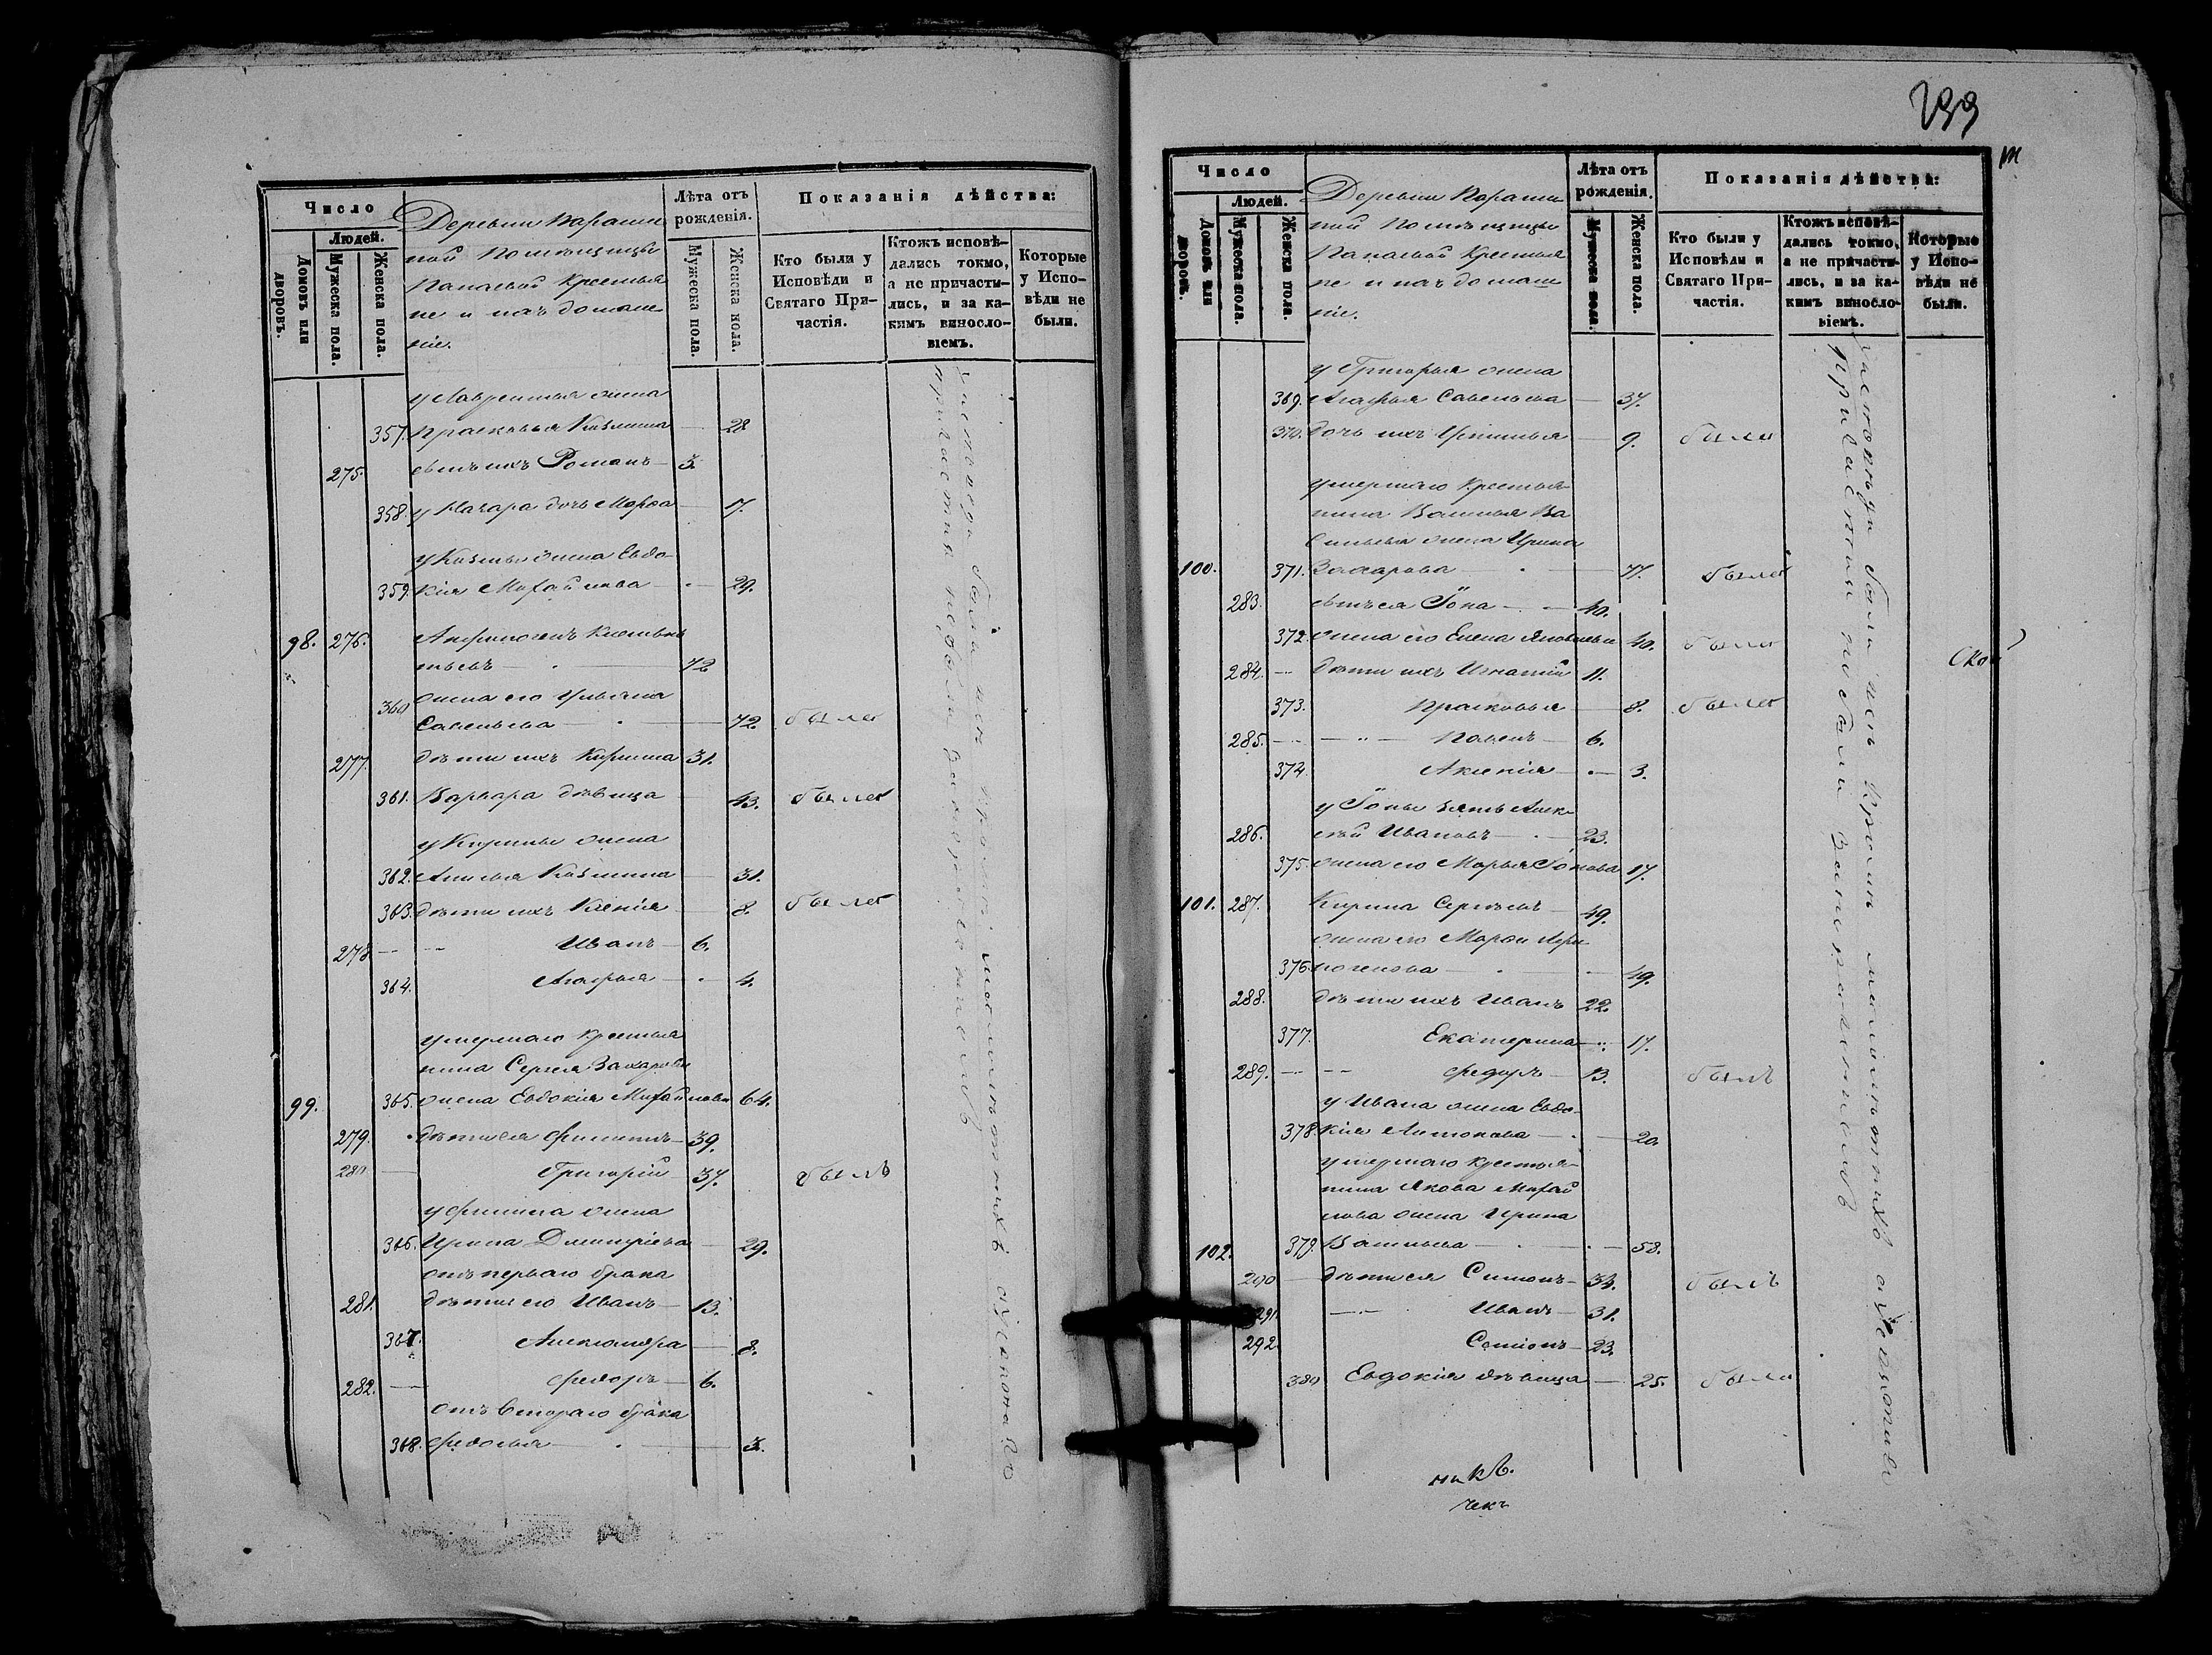 Число
Людей.
Домовъ или дворовъ.
Мужеска пола.
Женска пола.
Деревни Параши
ной Помѣщицы
Папаевой Крестья
не и ихъ домаш
ніе.
Лѣта отъ рожденія.
Мужеска пола.
Женска пола.
Показанія дѣйства:
Кто были у Исповѣди и Святаго Причастія.
Ктожъ исповѣдались токмо, а не причастились, и за какимъ винословіемъ.
Которые у Исповѣди не были.
у Лаврентья жена
357. Прасковья Козмина — 28
275. сынъ ихъ Романъ — 3.
358. у Макара дочь Марѳа — 7.
у Козмы жена Евдо
359. кія Михайлова — 29.
98. 276. Анѳиногенъ Клемен
тьевъ — 72
жена его Ульяна
360 Савельева — 72. была
277. дѣти ихъ Кирила 31.
361. Варвара дѣвица — 43. была
у Кирилы жена
362. Анисья Козмина — 31.
363. дѣти ихъ Ксенія — 8. была
278 Иванъ — 6.
364. Агафья — 4.
умершаго крестья
нина Сергея Захарова
99. 365. жена Евдокія Михайлова 64.
279. дѣти ея Филипъ — 39.
280 Григорій 37. былъ
у Филипа жена
366. Ирина Димитріева — 29.
отъ перваго брака
281. дѣти его Иванъ — 13.
367. Александра — 8.
282. Федоръ — 6.
отъ втораго брака
368. Федосья — 3.
299
Число
Людей.
Домовъ или дворовъ.
Мужеска пола.
Женска пола.
Деревни Параши
ной Помѣщицы
Папаевой Крестья
не и ихъ домаш
ніе.
Лѣта отъ рожденія.
Мужеска пола.
Женска пола.
Показанія дѣйства:
Кто были у Исповѣди и Святаго Причастія.
Ктожъ исповѣдались токмо, а не причастились, и за какимъ винословіемъ.
Которые у Исповѣди не были.
у Григорья жена
369. Агафья Савельева — 37.
370. дочь ихъ Ирина — 9. была
умершаго Крестья
нина Василья Ва
сильева жена Ирина
100. 371. Захарова — 77. была
283. сынъ ея Іона — 40.
372. жена его Елена Яковлева 40. была
284. дѣти ихъ Игнатій 11.
373. Прасковья — 8. была
285. Павелъ — 6.
374. Аксинія — 3.
у Іоны зять Алек
286. сѣй Ивановъ — 23.
375. жена его Марья Іонова 17.
101. 287. Кирила Сергѣевъ — 49.
жена его Марѳа Аѳи
376. ногенова — 49.
288. дѣти ихъ Иванъ 22.
377. Екатерина — 17.
289. Федоръ — 13. былъ
у Ивана жена Евдо
378. кія Антонова — 20.
умершаго крестья
нина Якова Михай
лова жена Ирина
102. 379. Васильева — 58.
290 дѣти ея Симонъ — 34. былъ
291. Иванъ — 31.
292. Семіонъ — 23.
380 Евдокія дѣвица — 25. была
ской